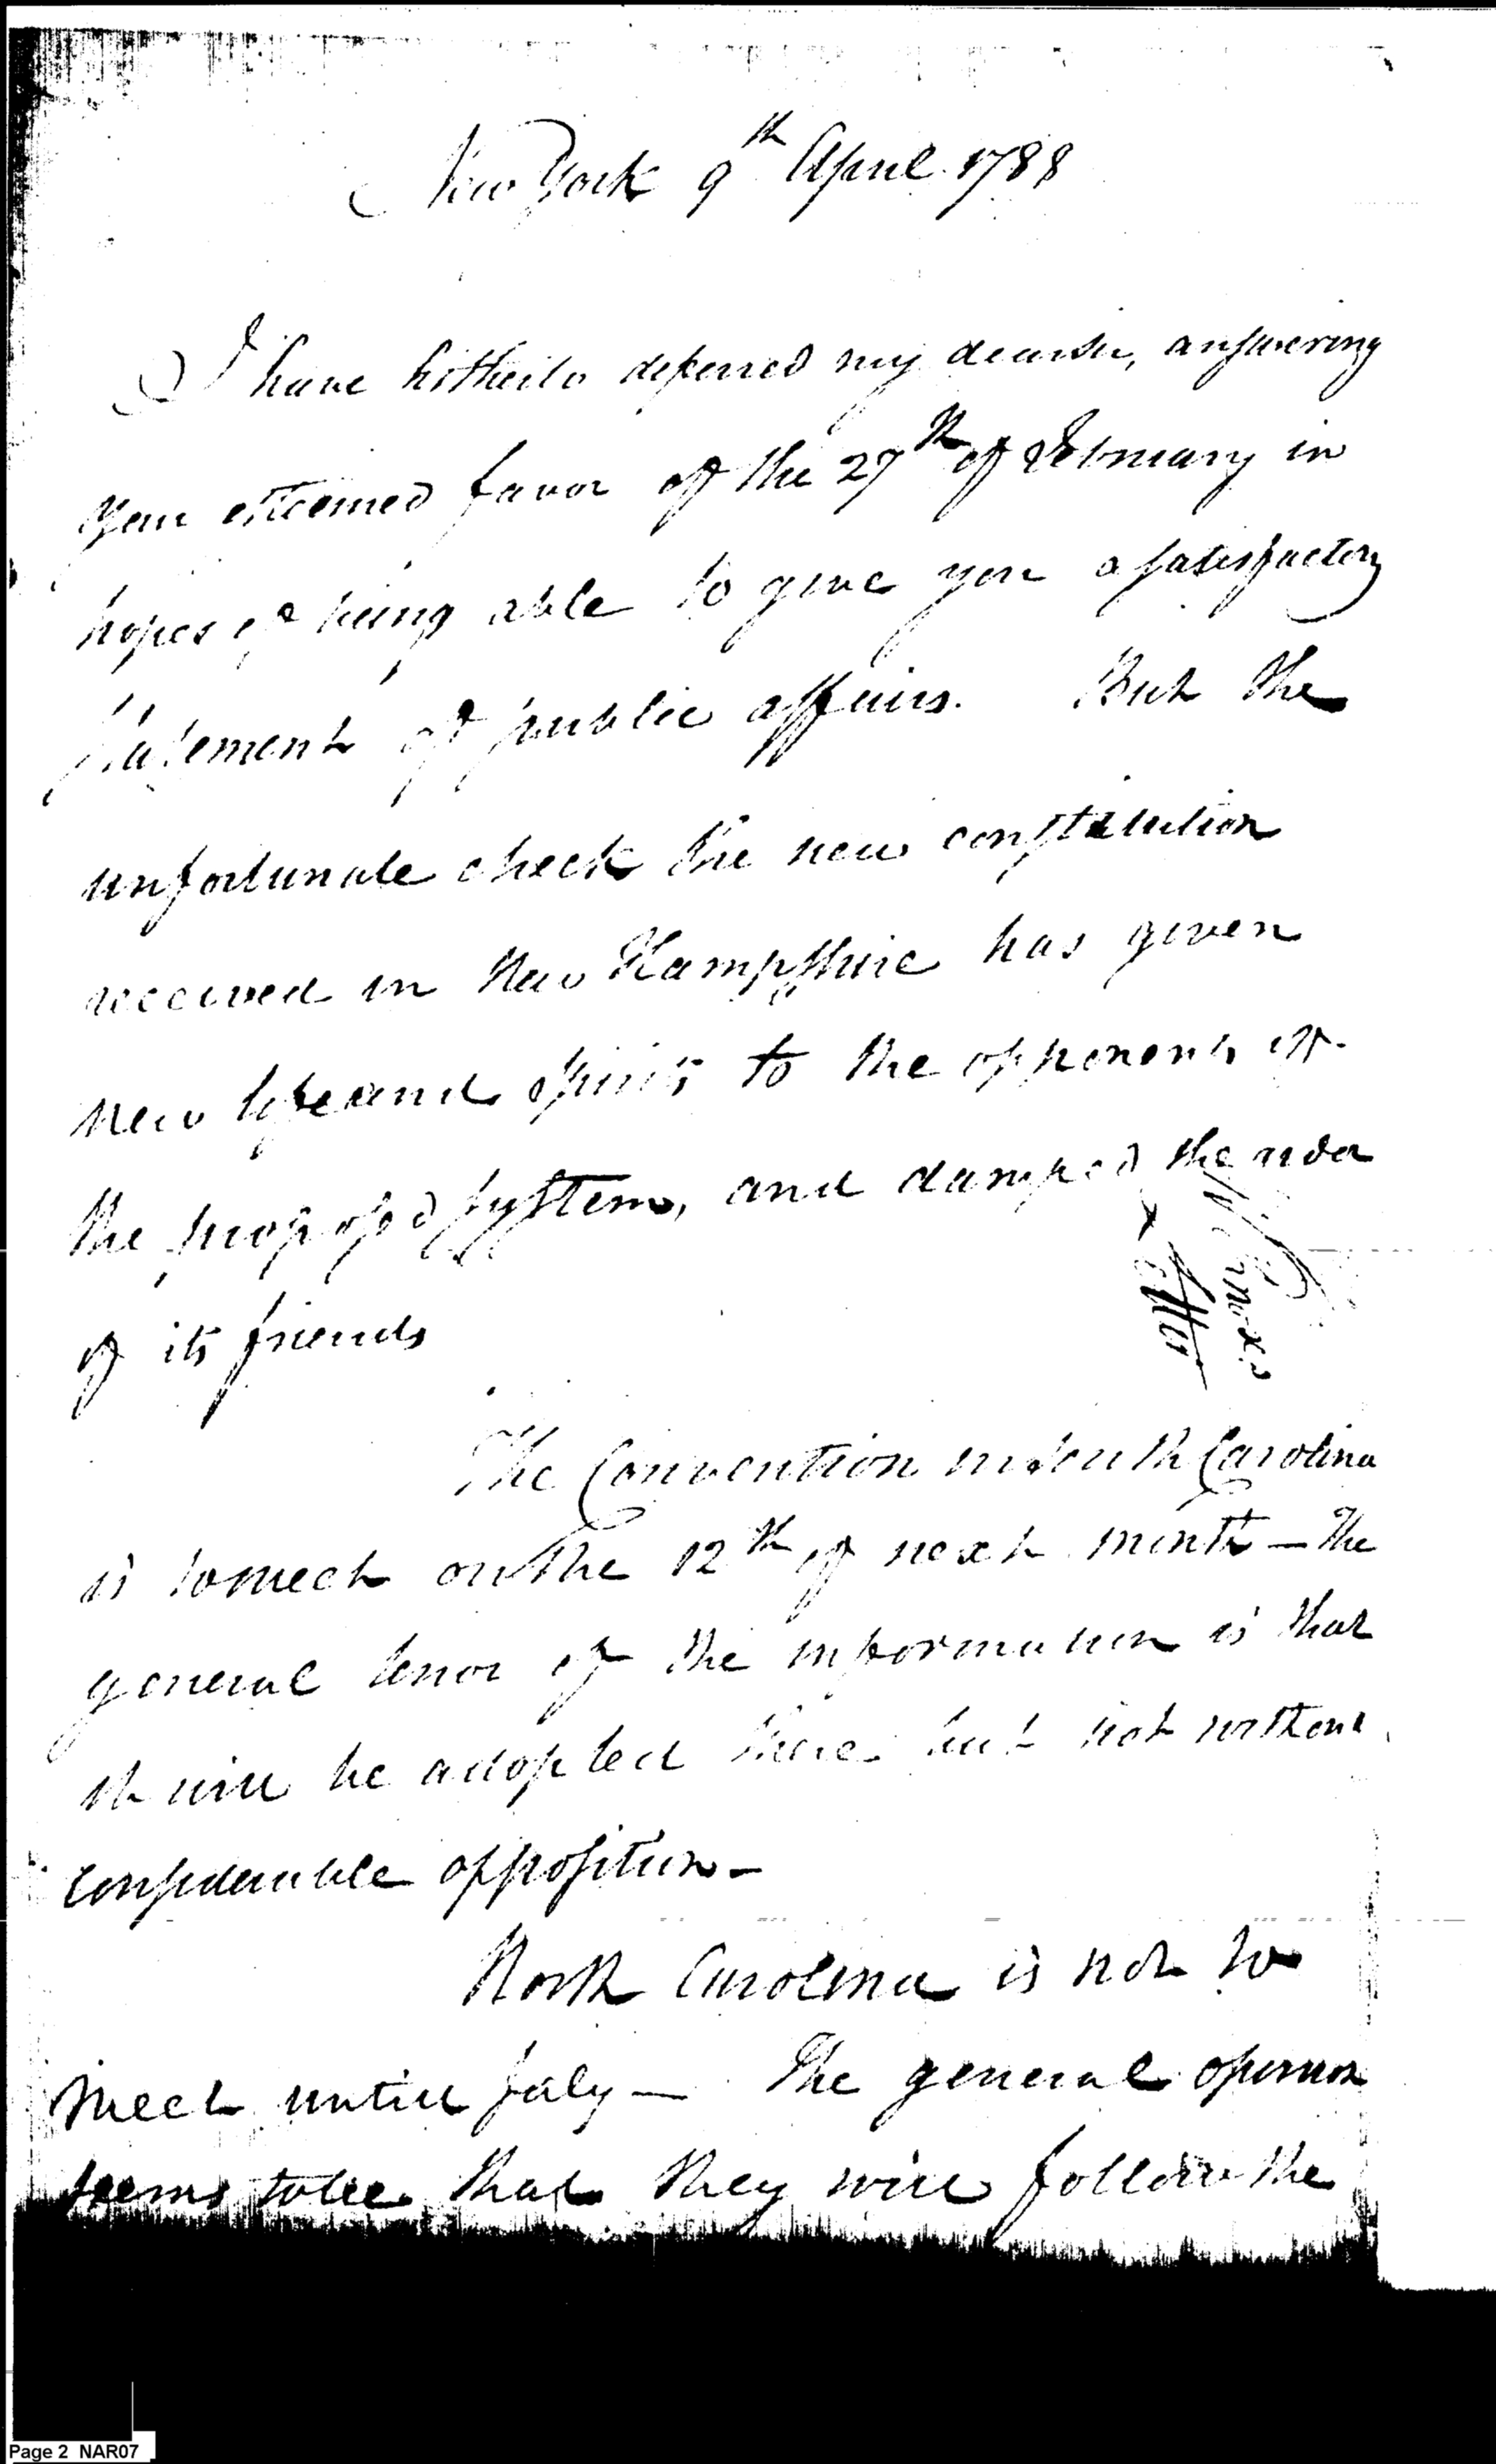 New York 9th April 1788
I have hitherto deferred my dear sir, answering
your esteemed favor of the 27th of February in
hopes of being able to give you a satisfactory
statement of public affairs. But the
unfortunate check the new constitution
received in New Hampshire has given
new life and spirits to the opponents of
the proposed system, and damped the ardor
of its friends
The Convention in South Carolina
is to meet on the 12th of next month — The
general tenor of the information is that
it will be adopted there but not without
considerable opposition —
North Carolina is not to
meet until July — The general opinion
seems to be that they will follow the
Knox
Page 2 NAR07